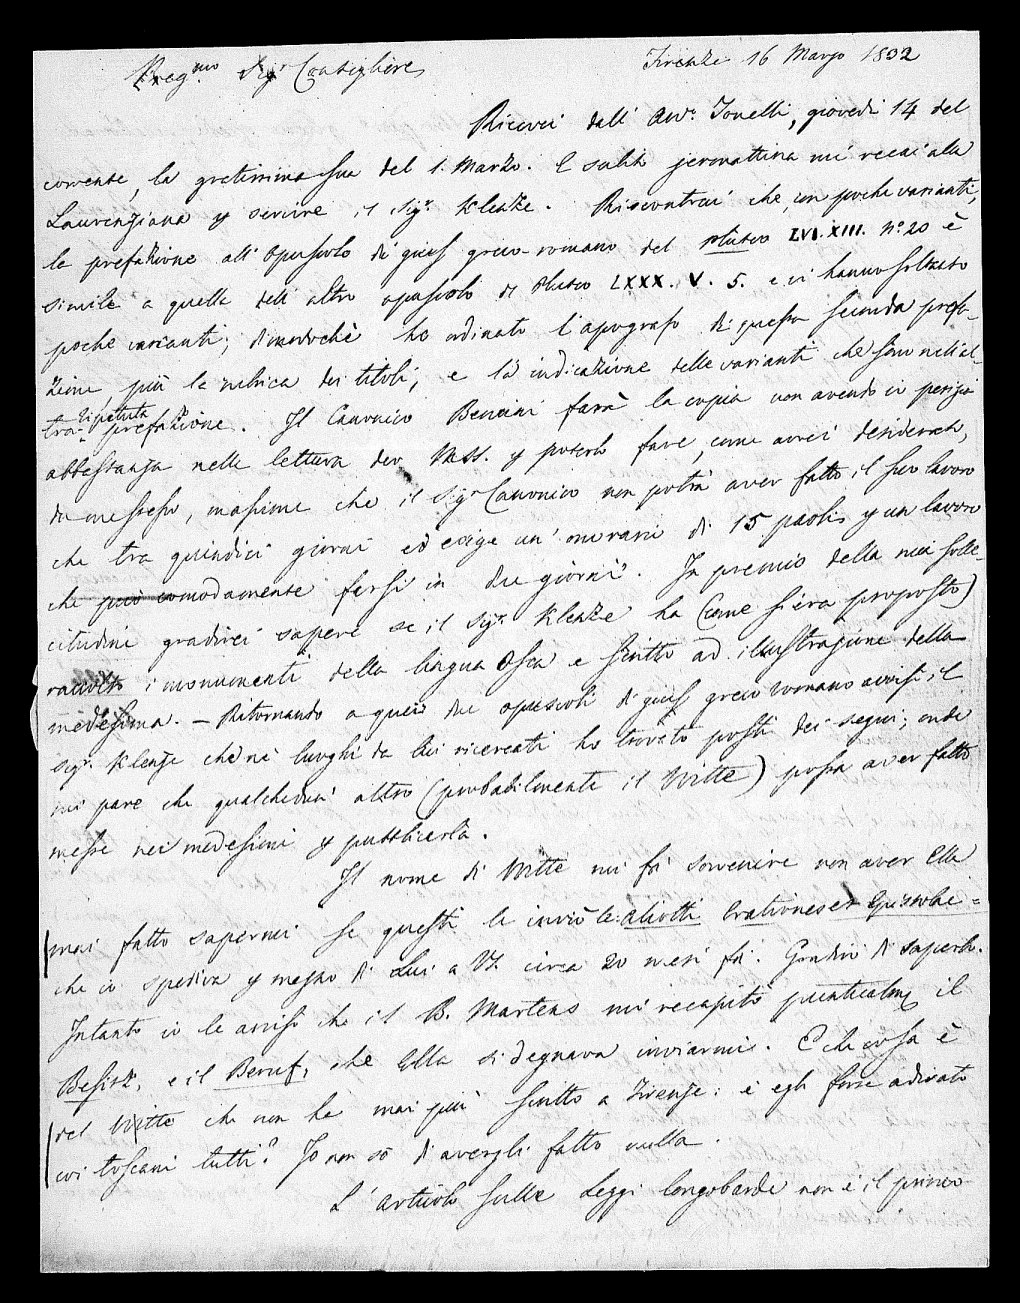 Preg.mo Sig.r Consigliere
Firenze 16 Marzo 1832
Ricevei dall' Avv. Tonelli, giovedì 14 del
corrente, la gratissima sua del 1. Marzo. E subito mi recai alla
Laurenziana p servire il Sig.r Klenze. Riscontrai che, con poche varianti,
la prefazione all' opuscolo di gius greco-romano del Pluteo LVI. XIII. N.o 20 è
simile a quella dell' altro opuscolo di Pluteo LXXX. V. 5. e vi hanno soltanto
poche varianti; dimodochè ho ordinato l'apografo di questa seconda prefa-
zione, più la rubrica dei titoli, e la indicazione delle varianti che sono nell'al-
tra ripetuta prefazione. Il Canonico Bencini farà la copia non avendo io perizia
abbastanza nella lettura dei MSS. p poterlo fare, come avrei desiderato,
da me stesso, massime che il Sig.r Canonico non potrà aver fatto il suo lavoro
che tra quindici giorni ed esige un' onorario di 15 paoli p un lavoro
che può comodamente farsi in due giorni. In premio della mia solle-
citudine gradirei sapere se il Sig.r Klenze ha (come s'era proposto)
raccolto i monumenti della lingua Osca e scritto ad illustrazione della
medesima. — Ritornando a quei due opuscoli di gius greco romano avvisi il
Sig.r Klenze che ne' luoghi da lui ricercati ho trovato posti dei segni; onde
mi pare che qualchedun' altro (probabilmente il Witte) possa aver fatto
messe nei medesimi p pubblicarla.
Il nome di Witte mi fa sovvenire non aver Ella
mai fatto sapermi se questi le inviò le: Aliotti Orationes et Epistolae =
che io spediva p mezzo di Lui a VS. circa 20 mesi fa. Gradirò di saperlo.
Intanto io le avviso che il B. Martens mi recapitò puntualm. il
Besitz, e il Beruf, che Ella si degnava inviarmi. E che cosa è
del Witte che non ha mai più scritto a Firenze: è egli forse adirato
coi toscani tutti? Io non so di avergli fatto nulla.
L' articolo sulle Leggi longobarde non è il primo